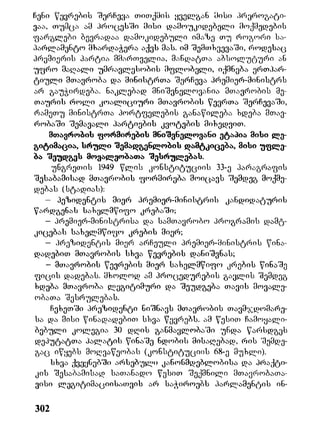 ჩენი წევრების შერჩევა თითქმის ყველგან მისი პრეროგატი-
ვაა, თუმცა ამ პროცესში მისი დამოუკიდებელი მოქმედების
ფარგლები ბევრადაა დამოკიდებული იმაზე თუ როგორი სა-
პარლამენტო მხარდაჭერა აქვს მას. იმ შემთხვევაში, როდესაც
პრემიერის პარტია მმართველია, მანდატთა აბსოლუტურ ან
უფრო მაღალი უმრავლესობის მფლობელი, იქმნება ერთპარ-
ტიული მთავრობა და მინისტრთა შერჩევა პრემიერ-მინისტრს
არ გაუჭირდება. ნაკლებად მნიშვნელოვანია მთავრობის მე-
თაურის როლი კოალიციური მთავრობის წევრთა შერჩევაში,
რამეთუ მინისტრთა პორტფელების განაწილება ხდება მთავ-
რობაში შემავალი პარტიების კვოტების მიხედვით.
მთავრობის ფორმირების მნიშვნელოვანი ეტაპია მისი ლე-
გიტიმაცია, სრული შემადგენლობის დამტკიცება, მისი უფლე-
ბა შეუდგეს მოვალეობათა შესრულებას.
უნგრეთის 1949 წლის კონსტიტუციის 33-ე პარაგრაფის
შესაბამისად მთავრობის ფორმირება მოიცავს შემდეგ მოქმე-
დებას (სტადიას):
– პეზიდენტის მიერ პრემიერ-მინისტრის კანდიდატურის
წარდგენას სახელმწიფო კრებაში;
– პრემიერ-მინისტრისა და სამთავრობო პროგრამის დამტ-
კიცებას სახელმწიფო კრების მიერ;
– პრეზიდენტის მიერ არჩეული პრემიერ-მინისტრის წინა-
დადებით მთავრობის სხვა წევრების დანიშვნას;
– მთავრობის წევრების მიერ სახელმწიფო კრების წინაშე
ფიცის დადებას. მხოლოდ ამ პროცედურების გავლის შემდეგ
ხდება მთავრობა ლეგიტიმური და შეუდგება თავის მოვალე-
ობათა შესრულებას.
ჩეხეთში პრეზიდენტი ნიშნავს მთავრობის თავმჯდომარე-
სა და მისი წინადადებით სხვა წევრებს. ამ წესით ჩამოყალი-
ბებული კოლეგია 30 დღის განმავლობაში უნდა წარსდგეს
დეპუტატთა პალატის წინაშე ნდობის მისაღებად, რის შემდე-
გაც იწყებს მოღვაწეობას (კონსტიტუციის 68-ე მუხლი).
სხვა ქვეყნებში არსებული კანონმდებლობისა და პრაქტი-
კის შესაბამისად სათანადო წესით შექმნილი მთავრობათა-
ვისი ლეგიტიმაციისათვის არ საჭიროებს პარლამენტის ინ-
302